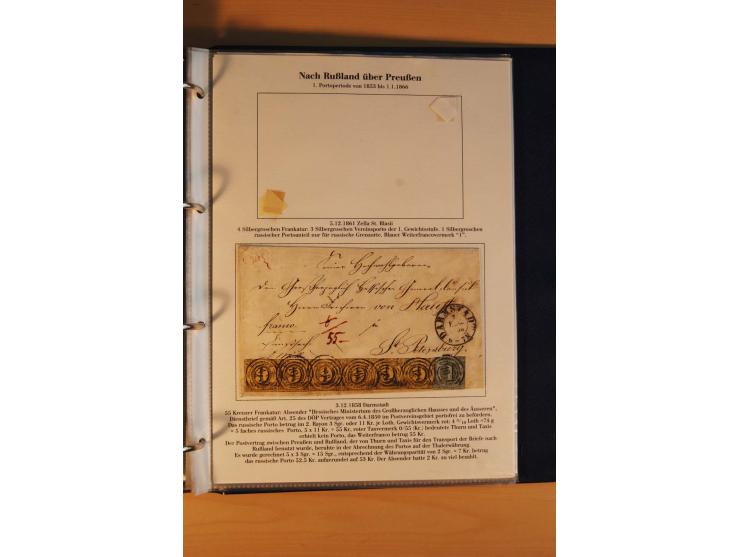 Nach Rußland über Preußen
1. Portoperiode von 1853 bis 1.1.1866
5.12.1861 Zella St. Blasii
4 Silbergroschen Frankatur: 3 Silbergroschen Vereinsporto der 1. Gewichtsstufe. 1 Silbergroschen
russischer Portoanteil nur für russische Grenzorte. Blauer Weiterfrancovermerk "1".
Seiner Hochwohlgeboren
Dem Großherzoglich Hessischen General
Herrn Freiherrn von
franco
8/55-
St. Petersburg.
DARMSTADT
3.12.1858 Darmstadt
55 Kreuzer Frankatur: Absender "Hessisches Ministerium des Großherzoglichen Hauses und des Äusseren".
Dienstbrief gemäß Art. 25 des DÖP Vertrages vom 6.4.1850 im Postvereinsgebiet portofrei zu befördern.
Das russische Porto betrug im 2. Rayon 3 Sgr. oder 11 Kr. je Loth, Gewichtsvermerk rot: 4 Loth =74 g
= 5 faches russisches Porto, 5 x 11 Kr. = 55 Kr. roter Taxvermerk 0/55 (Kr.) bedeutete Thurn und Taxis
erhielt kein Porto, das Weiterfranco betrug 55 Kr.
Der Postvertrag zwischen Preußen und Rußland, der von Thurn und Taxis für den Transport der Briefe nach
Rußland benutzt wurde, beruhte in der Abrechnung des Portos auf der Thalerwährung.
Es wurde gerechnet 5 x 3 Sgr. = 15 Sgr., entsprechend der Währungsparität von 2 Sgr. = 7 Kr. betrug
das russische Porto 52.5 Kr. aufgerundet auf 53 Kr. Der Absender hatte 2 Kr. zu viel bezahlt.